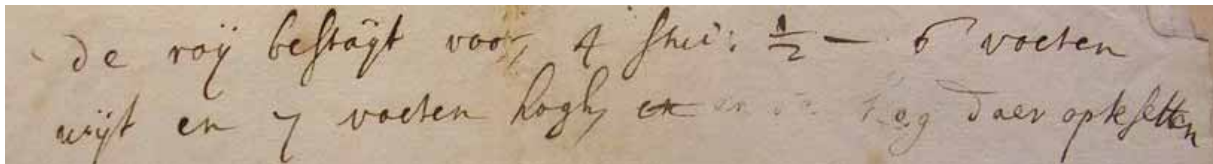 de roÿ bestaÿt voor 4 stui: ½ — 6 voeten
wijt en 7 voeten hogh, en heg daer op te setten